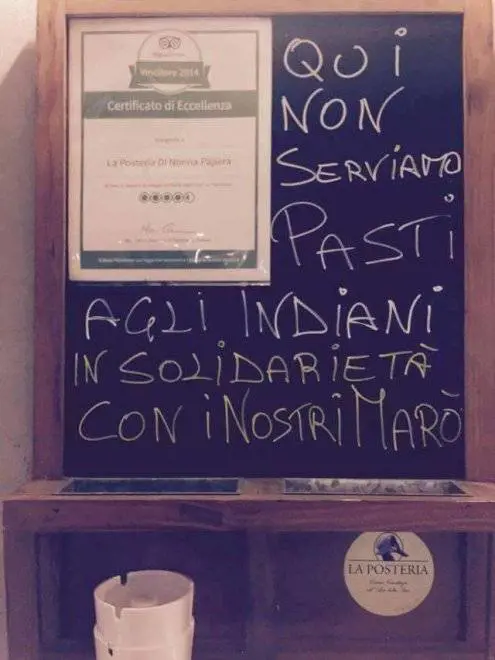 Vincitore 2014
Certificato di Eccellenza
La Posteria Di Nonna Papera
QUI
NON
SERVIAMO
PASTI
AGLI INDIANI
IN SOLIDARIETÀ
CON I NOSTRI MARÒ
LA POSTERIA